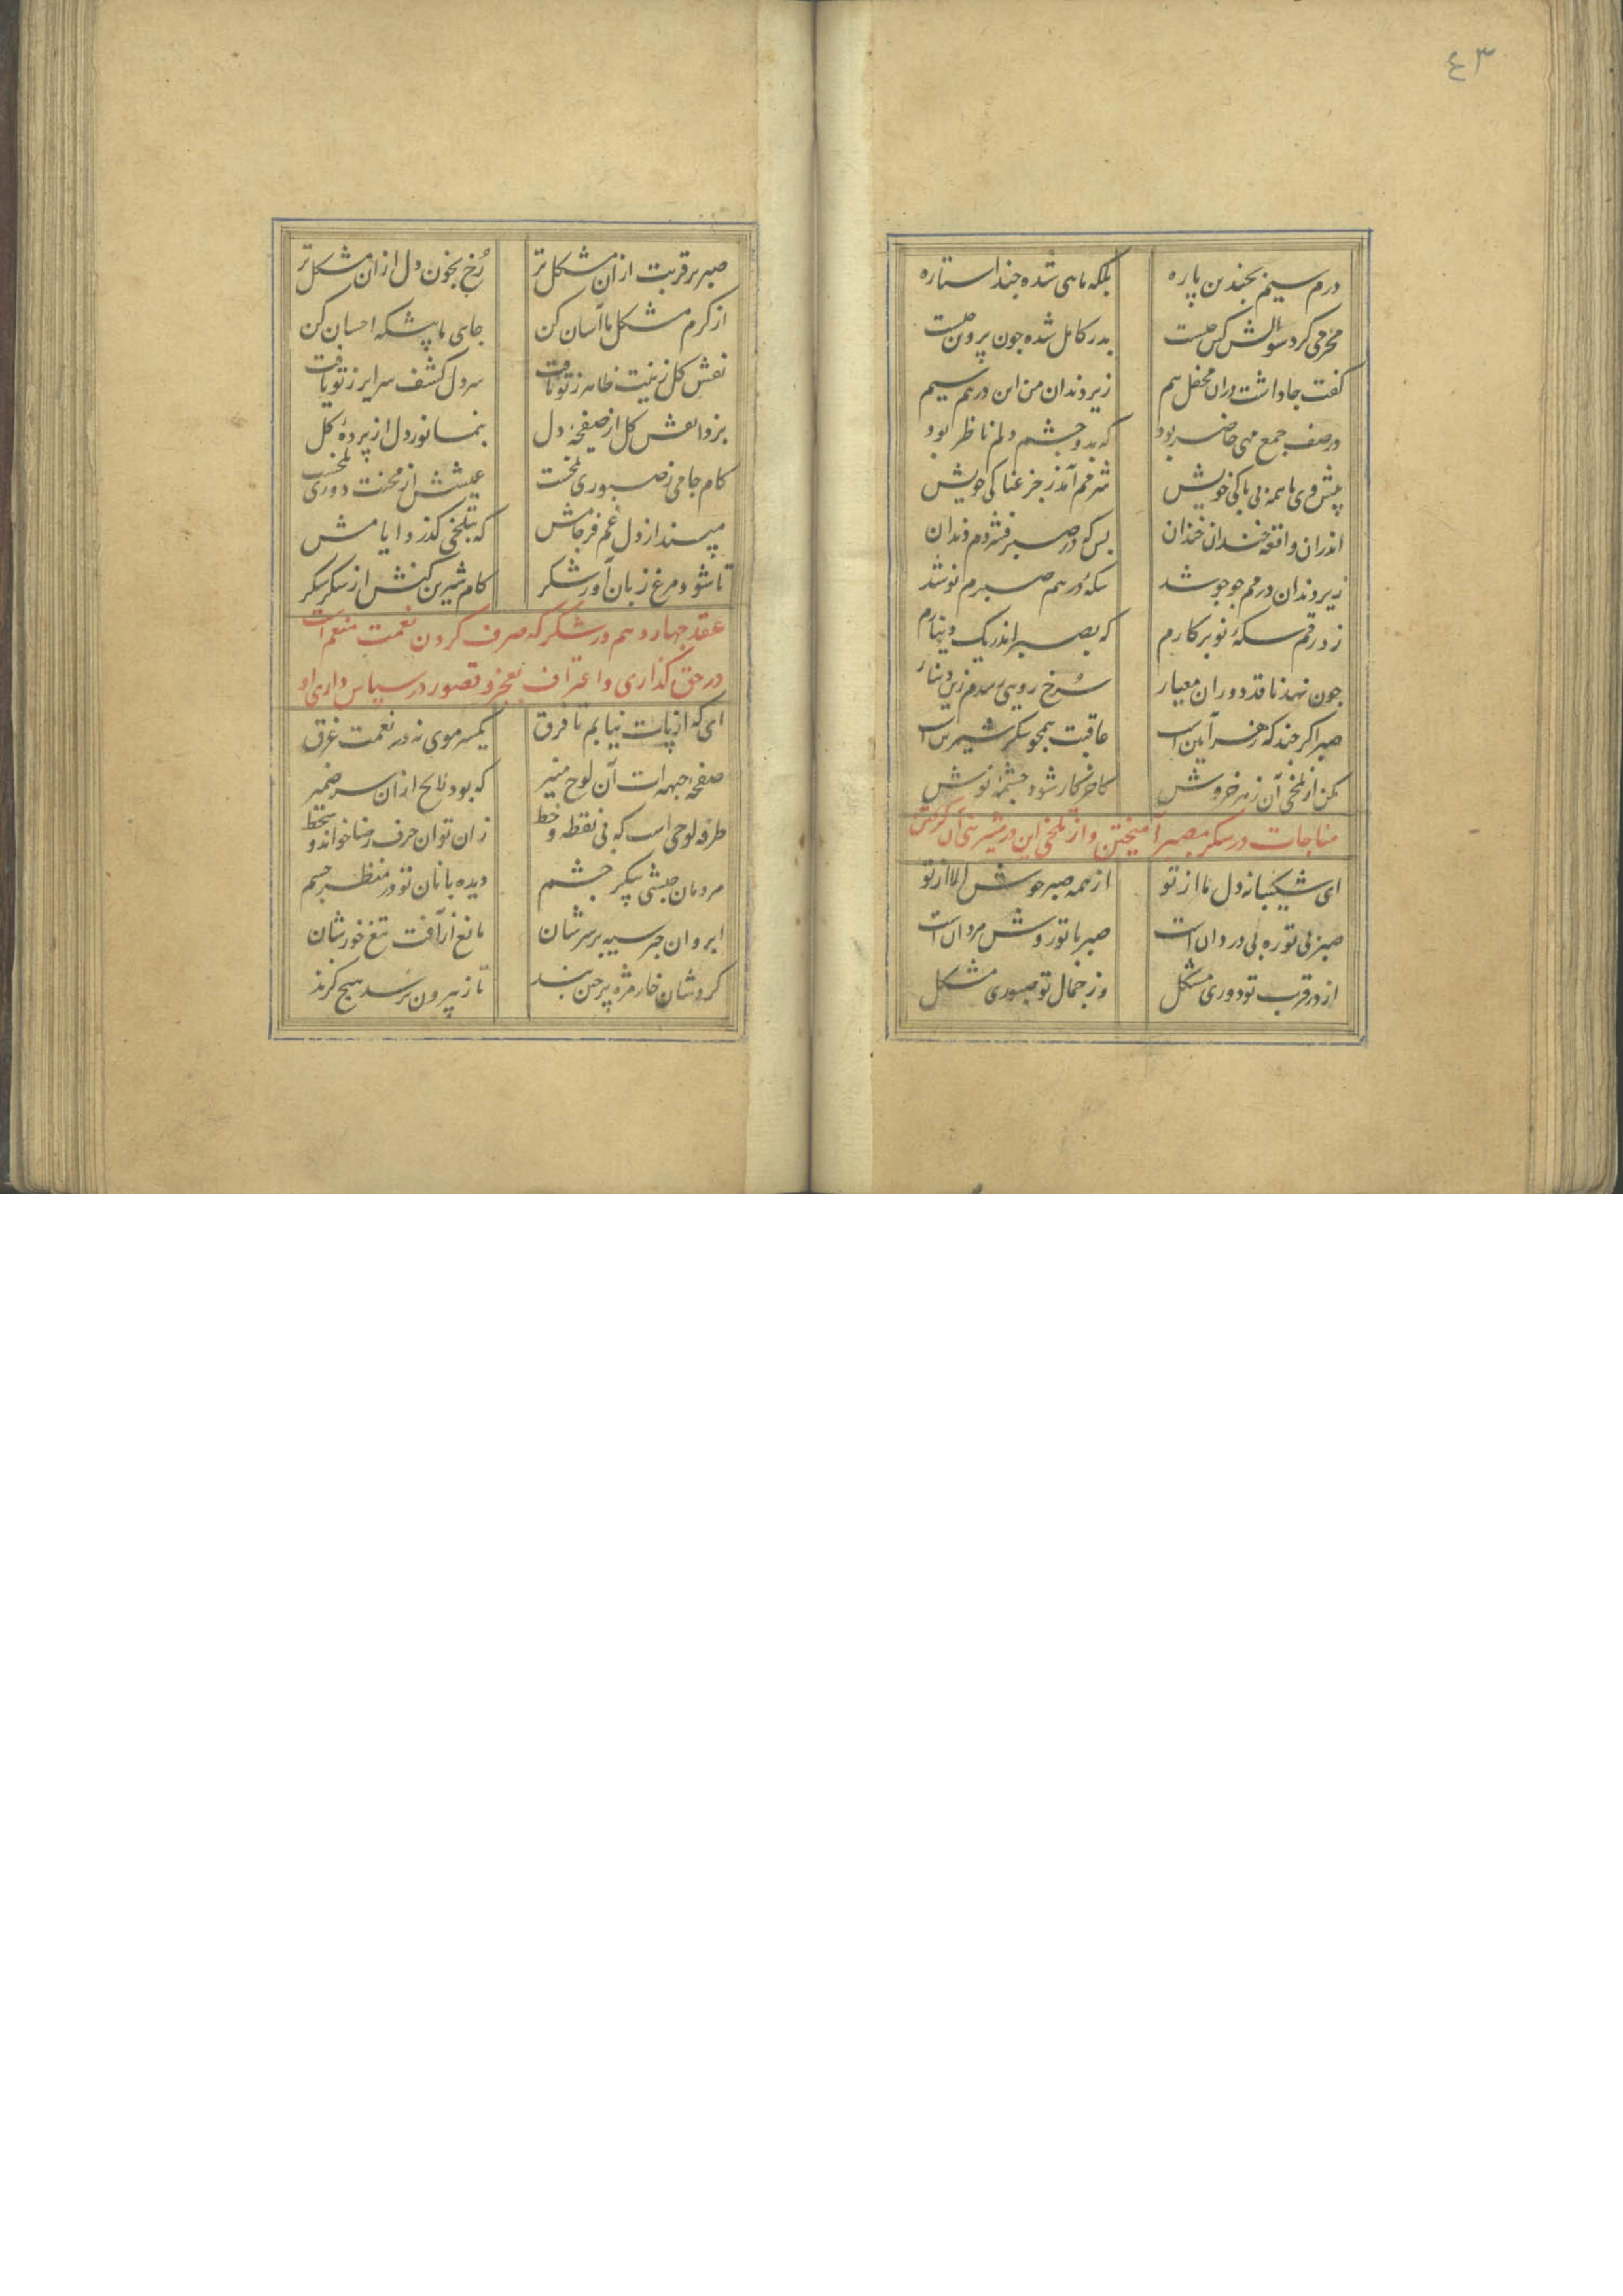 ٤٣
درم سیم بچندین پاره بلکه ماهی شده چند استاره
محرمی کرد سؤالش کین چیست بدر کامل شده چون پروین چیست
گفت جا داشت دران محفل بیم زیر دندان من این درهم سیم
در صف جمع مهی حاضر بود که بدو چشم دلم ناظر بود
پیش وی با همه بی باکی خویش شرمم آمد ز جزعناکی خویش
اندران واقعه خندان خندان بس که در صبر فشردم دندان
زیر دندان درمم جوجو شد سکهٔ درهم صبرم نو شد
زد رقم سکهٔ نو بر کارم که بصبر اندر یک دینارم
چون نهد ناقد دوران معیار سرخ رویی رسدم زین دینار
صبر اگر چند که زهر آیین است عاقبت همچو شکر شیرین است
مکن از تلخی آن زهر خروش کآخر کار شود چشمهٔ نوش
مناجات در شکر بصبر آمیختن و از تلخی این در شیرینی آن گریختن
ای شکیبا نه دل ما از تو از همه صبر خوش الا از تو
صبر بی تو ره بی دردان است صبر با تو روش مردان است
از در قرب تو دوری مشکل وز جمال تو صبوری مشکل
صبر بر قربت از آن مشکل تر رخ بخون دل از ان مشکل تر
از کرم مشکل ما آسان کن جای ما پیشکه احسان کن
نقش کل زینت ظاهر ز تو یافت سر دل کشف سرایر ز تو یافت
بزدا نقش کل از صفحهٔ دل بنما نور دل از پردهٔ کل
کام جامی ز صبوری تلخست عیشش از محنت دوری تلخست
مپسند از دل غم فرجامش که بتلخی گذرد ایامش
تا شود مرغ زبان آور شکر کام شیرین کنش از شکر شکر
عقد چهاردهم در شکر که صرف کردن نعمت منعم است
در حق گذاری و اعتراف بعجز و قصور در سپاس داری او
ای که از پات نیابم تا فرق یکسر موی نه در نعمت غرق
صفحهٔ جبهه ات آن لوح منیر که بود لایح ازان سر ضمیر
طرفه لوحی است که بی نقطه و خط زان توان حرف رضا خواند و سخط
مردمان حبشی پیکر چشم دیده بانان تو در منظر جسم
ابروان چتر سیه بر سرشان مانع از آفت تیغ خورشان
گردشان خار مژه پرچین بند تا ز بیرون نرسد هیچ گزند